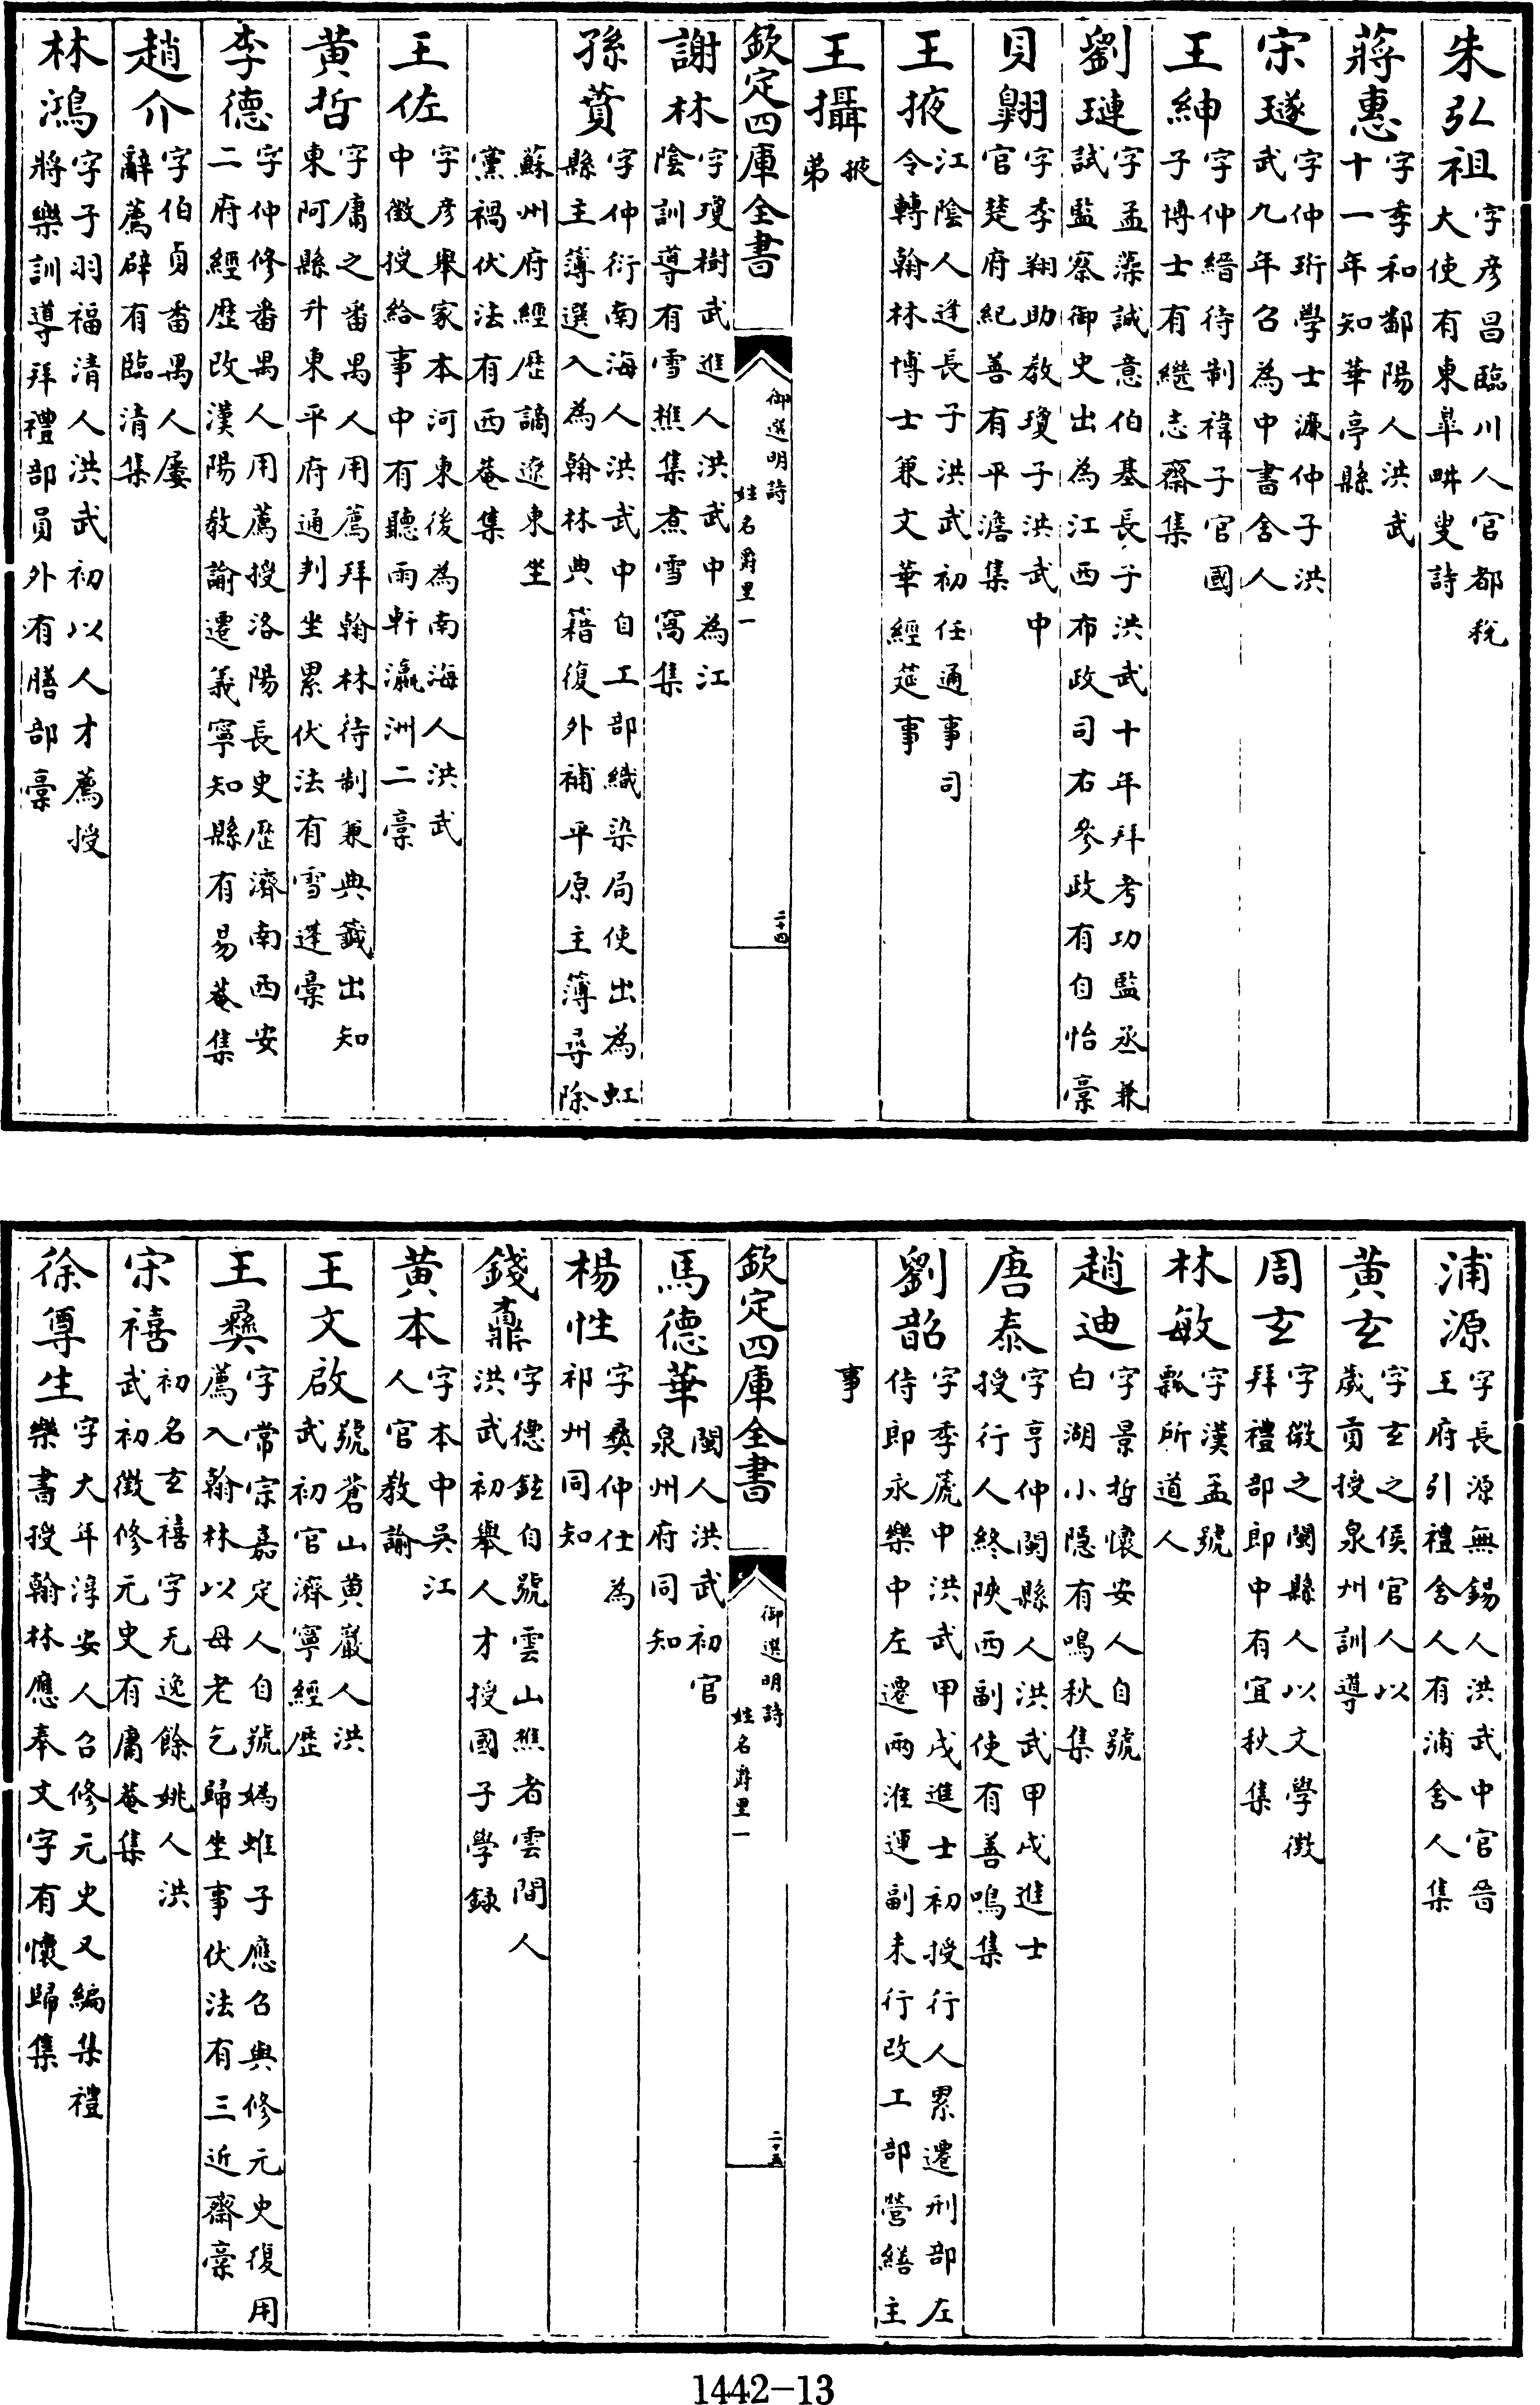 朱弘祖字彥昌臨川人官都稅
大使有東臯畊叟詩
蔣惠字季和鄱陽人洪武
十一年知華亭縣
宋璲字仲珩學士濂仲子洪
武九年召為中書舍人
王紳字仲縉待制禕子官國
子博士有繼志齋集
劉璉字孟藻誠意伯基長子洪武十年拜考功監丞兼
試監察御史出為江西布政司右參政有自怡稾
貝翺字季翔助教瓊子洪武中
官楚府紀善有平澹集
王掖江陰人逹長子洪武初任通事司
令轉翰林博士兼文華經筵事
王攝掖
弟
欽定四庫全書
御選明詩
姓名爵里一
二十四
謝林字瓊樹武進人洪武中為江
陰訓導有雪樵集煮雪窩集
孫蕡字仲衍南海人洪武中自工部織染局使出為虹
縣主簿選入為翰林典籍復外補平原主簿尋除
蘇州府經歴謫遼東坐
黨禍伏法有西菴集
王佐字彥舉家本河東後為南海人洪武
中徵授給事中有聽雨軒瀛洲二稾
黄哲字庸之番禺人用薦拜翰林待制兼典籖出知
東阿縣升東平府通判坐累伏法有雪蓬稾
李德字仲修番禺人用薦授洛陽長史歴濟南西安
二府經歴改漢陽教諭遷義寧知縣有易菴集
趙介字伯貞番禺人屢
辭薦辟有臨清集
林鴻字子羽福清人洪武初以人才薦授
將樂訓導拜禮部員外有膳部稾
浦源字長源無錫人洪武中官晉
王府引禮舍人有浦舍人集
黄玄字玄之侯官人以
歲貢授泉州訓導
周玄字微之閩縣人以文學徵
拜禮部郎中有宜秋集
林敏字漢孟號
瓢所道人
趙迪字景哲懷安人自號
白湖小隠有鳴秋集
唐泰字亨仲閩縣人洪武甲戌進士
授行人終陜西副使有善鳴集
劉韶字季箎中洪武甲戌進士初授行人累遷刑部左
侍郎永樂中左遷兩淮運副未行改工部營繕主
事
欽定四庫全書
御選明詩
姓名爵里一
二十五
馬德華閩人洪武初官
泉州府同知
楊性字彞仲仕為
祁州同知
錢鼒字德鉉自號雲山樵者雲間人
洪武初舉人才授國子學録
黄本字本中吳江
人官教諭
王文啟號蒼山黄巖人洪
武初官濟寧經歴
王彝字常宗嘉定人自號媯蜼子應召與修元史復用
薦入翰林以母老乞歸坐事伏法有三近齋稾
宋禧初名玄禧字无逸餘姚人洪
武初徵修元史有庸菴集
徐尊生字大年淳安人召修元史又編集禮
樂書授翰林應奉文字有懷歸集
1442-13